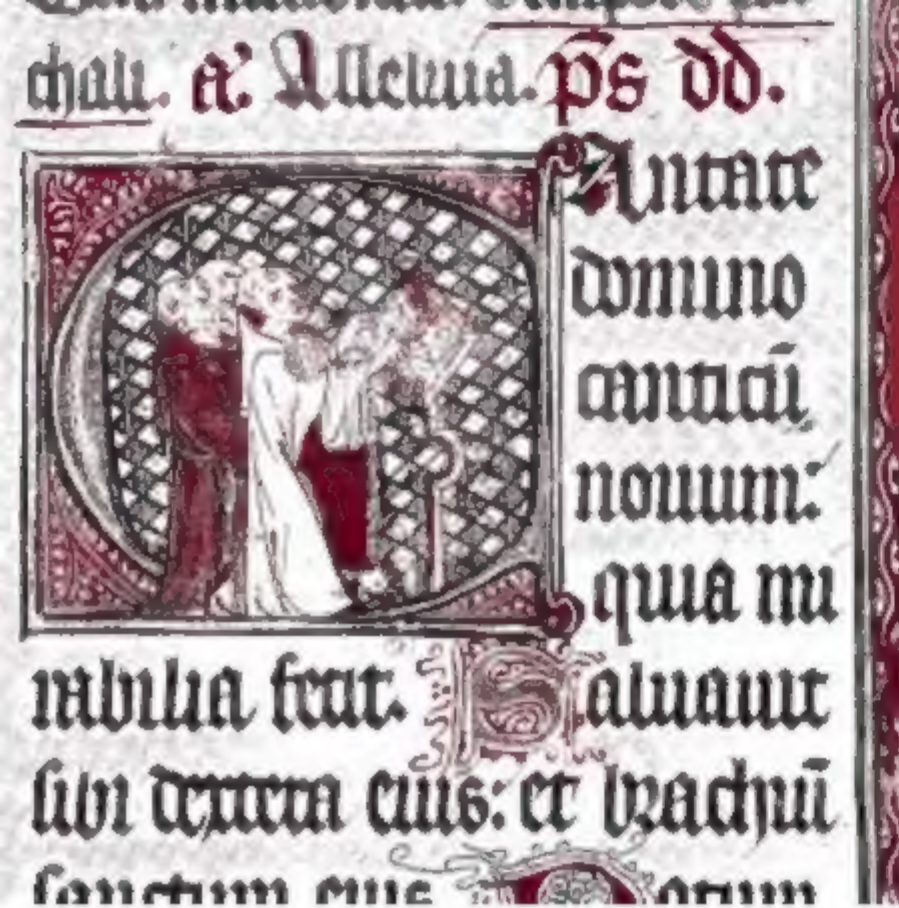 chali. a᷑ Alleluua. p̄s dd.
CAntate
domino
canticū
nouum:
quia mi
rabilia fecit. Saluauit
sibi dextera eius: et brachiū
sanctum eius. Notum